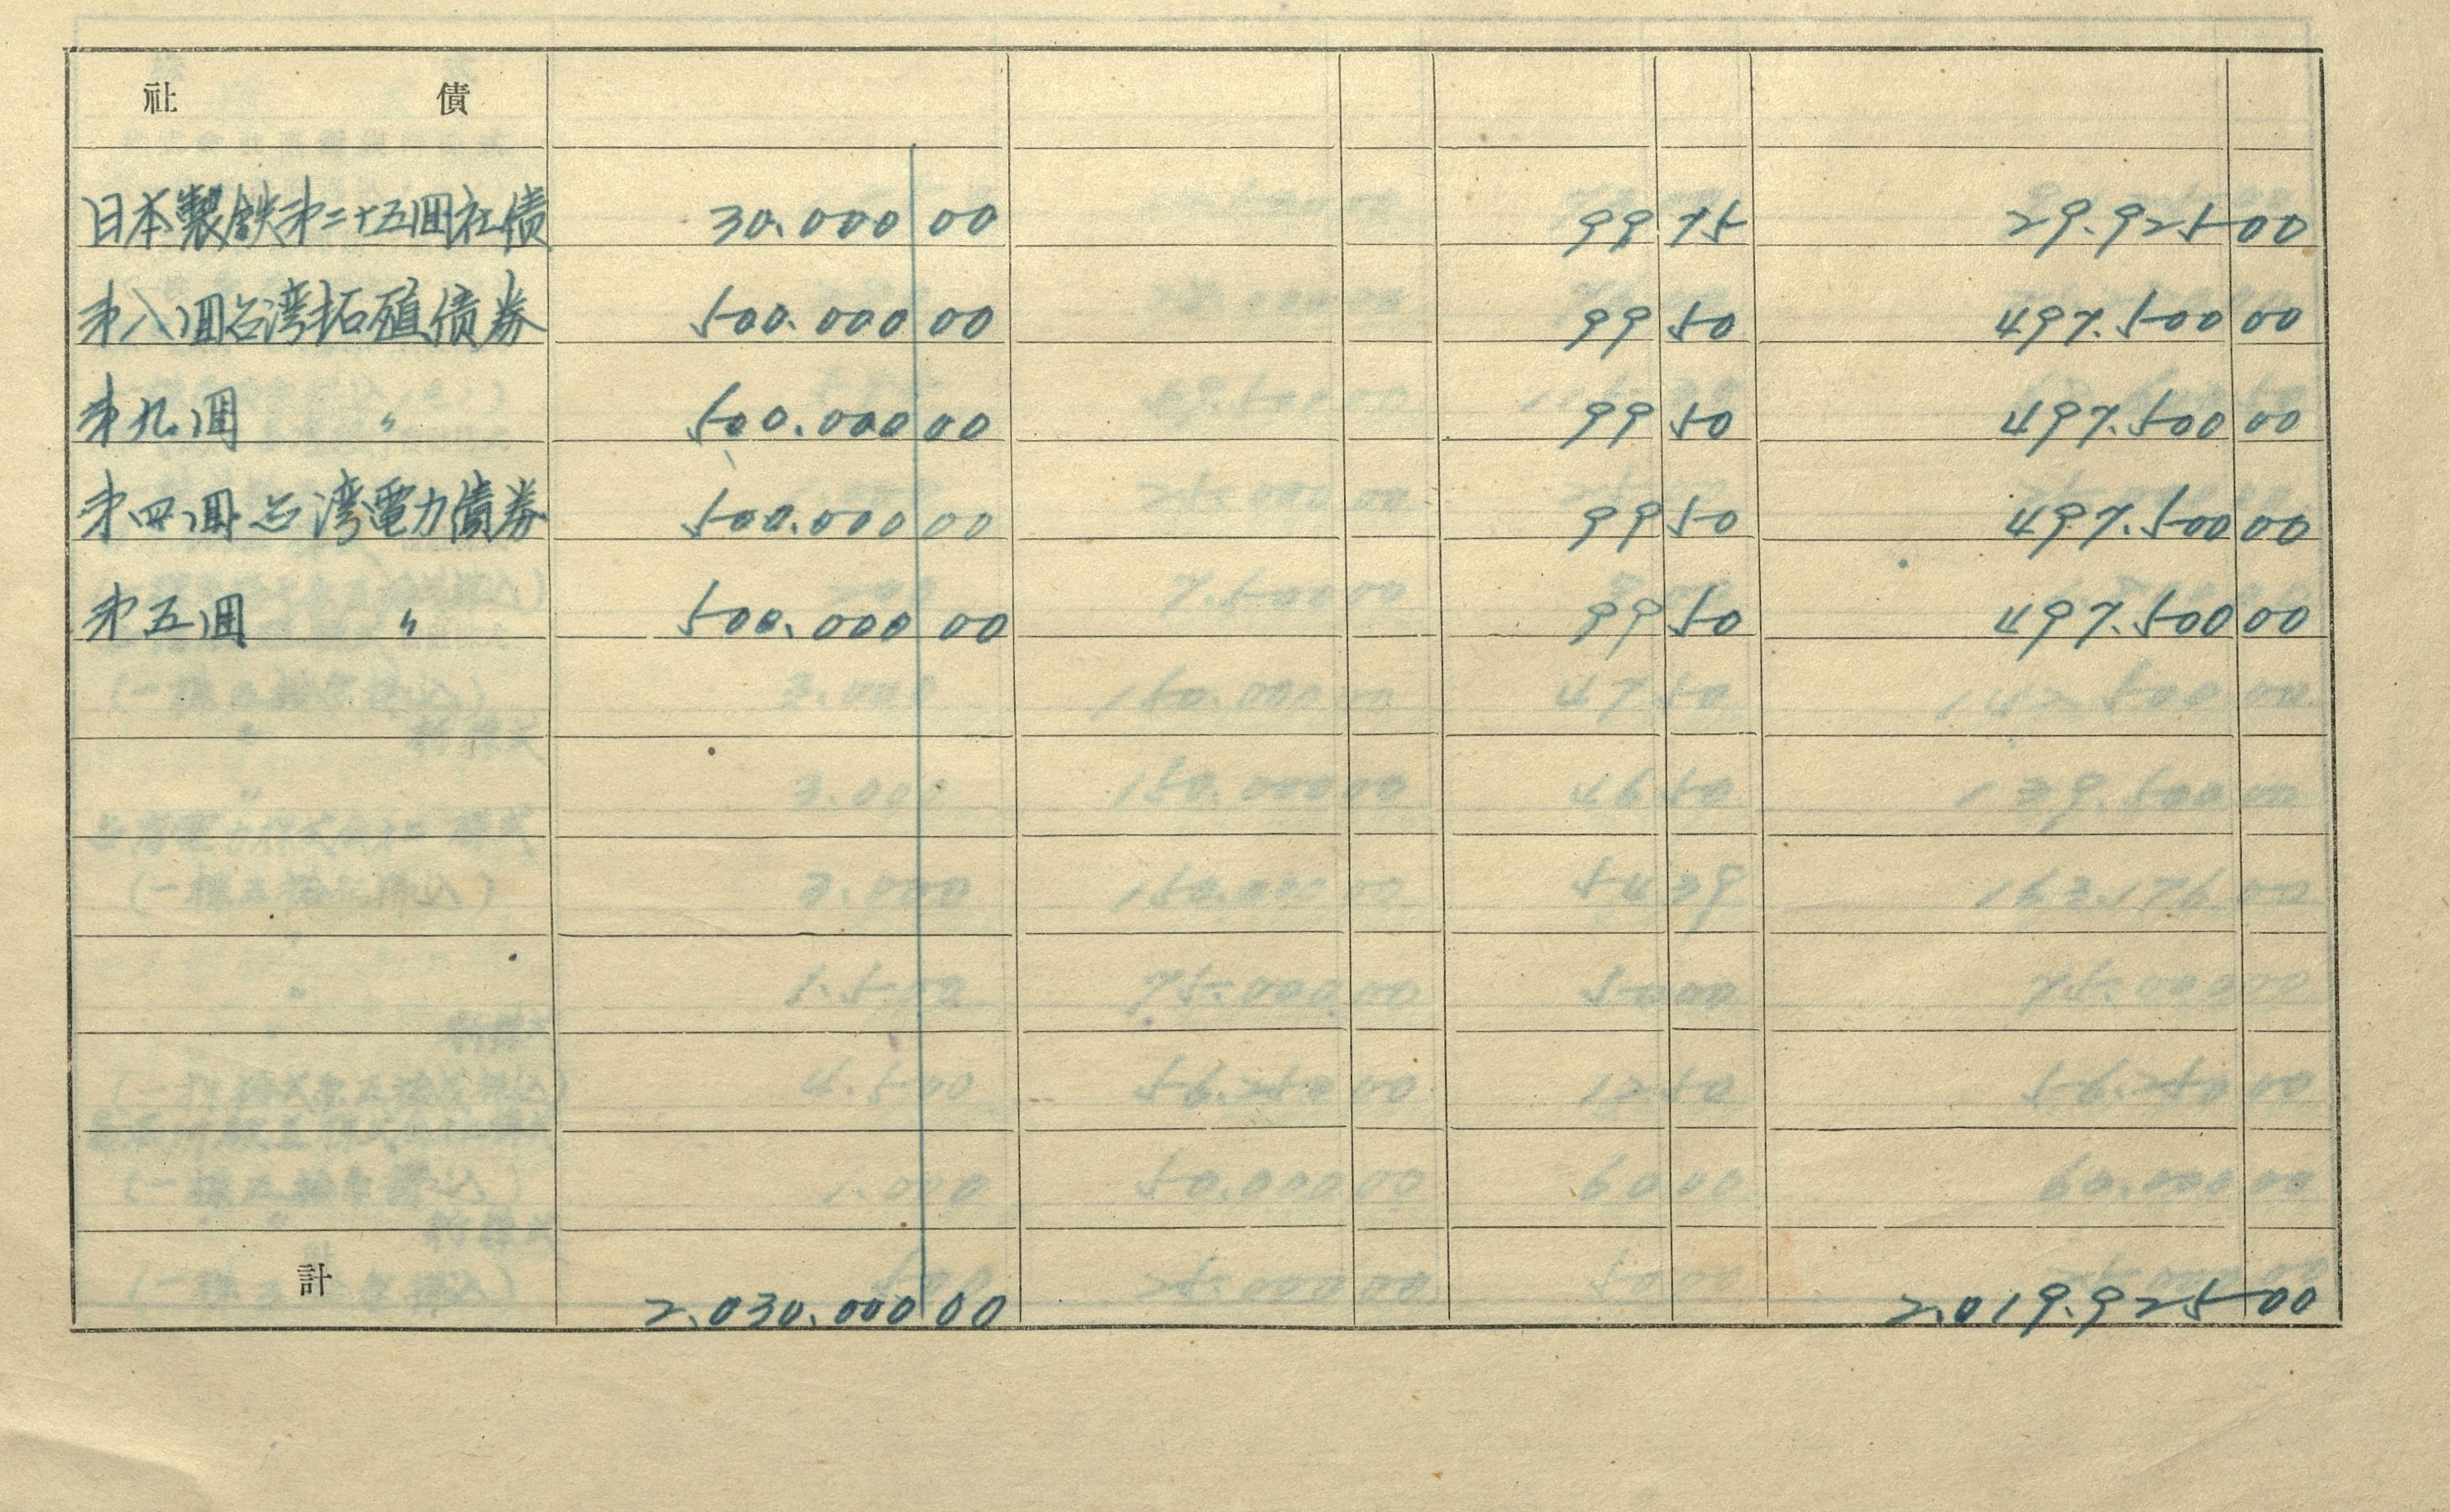 社債
日本製鉄第二十五回社債 30.000 00 99 75 29.925 00
第八回台湾拓殖債券 500.000 00 99 50 497.500 00
第九回 〃 500.000 00 99 50 497.500 00
第四回台湾電力債券 500.000 00 99 50 497.500 00
第五回 〃 500.000 00 99 50 497.500 00
計 2.030.000 00 2.019.925 00